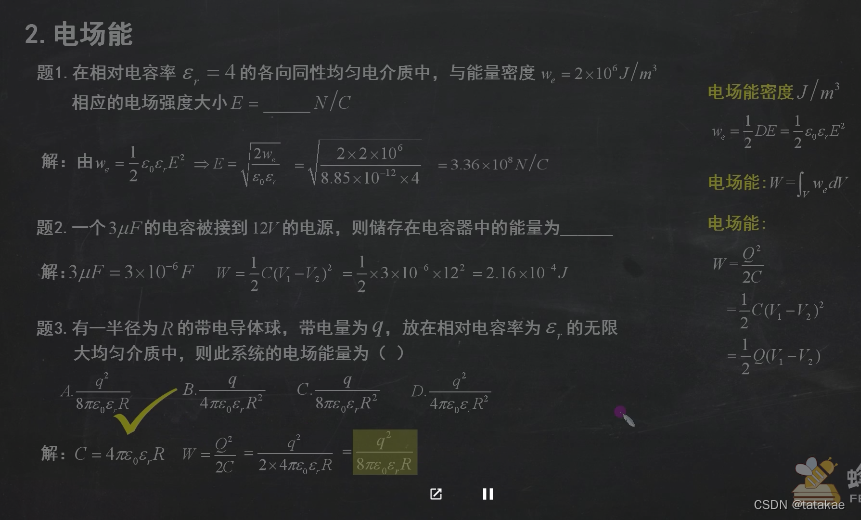 2.电场能
题1.在相对电容率 εᵣ = 4 的各向同性均匀电介质中，与能量密度 wₑ = 2×10⁶J/m³
相应的电场强度大小 E = _____ N/C
解：由wₑ = 1/2 ε₀εᵣE² ⇒ E = √(2wₑ/ε₀εᵣ) = √(2×2×10⁶/8.85×10⁻¹²×4) = 3.36×10⁸N/C
题2.一个 3μF 的电容被接到 12V 的电源，则储存在电容器中的能量为______
解：3μF = 3×10⁻⁶F W = 1/2 C(V₁−V₂)² = 1/2 ×3×10⁻⁶×12² = 2.16×10⁻⁴J
题3.有一半径为 R 的带电导体球，带电量为 q，放在相对电容率为 εᵣ 的无限
大均匀介质中，则此系统的电场能量为（ ）
A. q²/8πε₀εᵣR B. q/4πε₀εᵣR² C. q/8πε₀εᵣR² D. q²/4πε₀εᵣR²
解：C = 4πε₀εᵣR W = Q²/2C = q²/2×4πε₀εᵣR = q²/8πε₀εᵣR
电场能密度 J/m³
wₑ = 1/2 DE = 1/2 ε₀εᵣE²
电场能：W = ∫ᵥ wₑdV
电场能：
W = Q²/2C
= 1/2 C(V₁−V₂)²
= 1/2 Q(V₁−V₂)
CSDN @tatakae